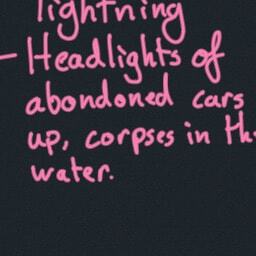 lightning
- Headlights of
abondoned cars
up, corpses in th
water.